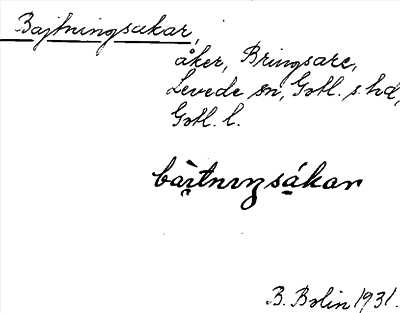 Bajtningsåkar,
åker, Bringsarve,
Levede sn, Gotl. s. hd,
Gotl. l.
bàɪ̯tnıŋsá̱kar
B. Bolin 1931.